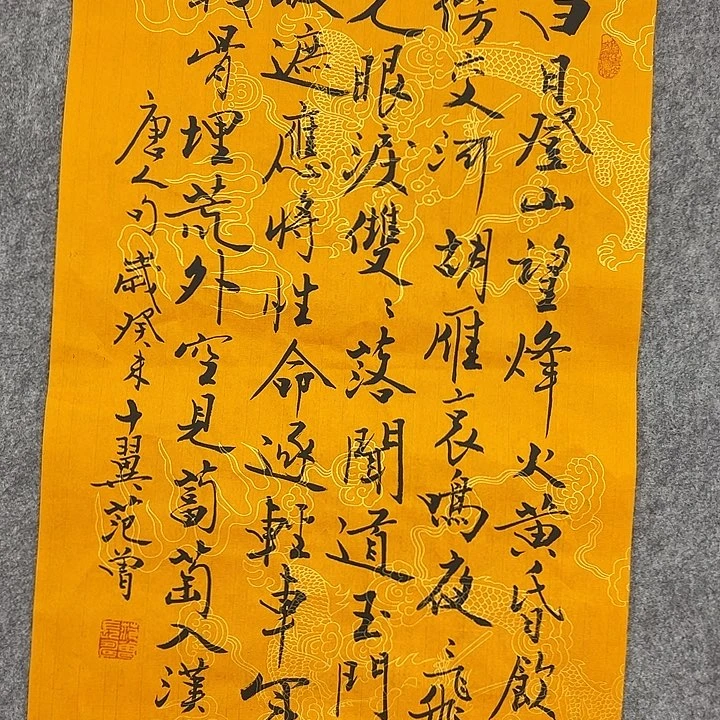 白日登山望烽火黄昏飲
傍交河胡雁哀鳴夜々飛
眼淚雙々落聞道玉門
遮應將性命逐輕車年
戰骨埋荒外空見蔔萄入漢
唐人句歲癸未十翼范曾